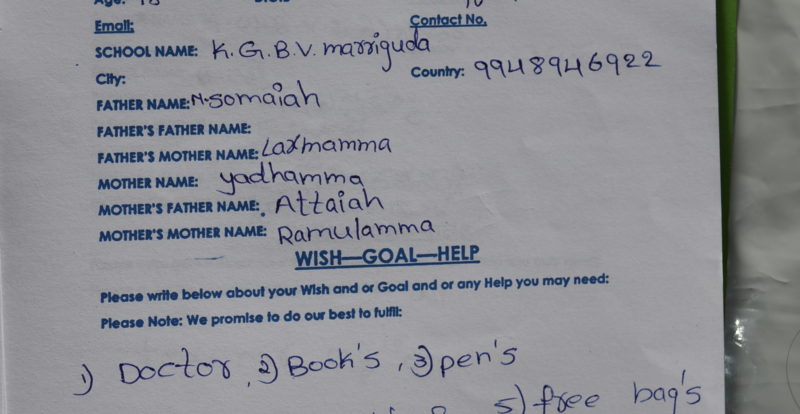 Age:
Email: Contact No.
SCHOOL NAME: K.G.B.V. marriguda
City: Country: 9948946922
FATHER NAME: N.somaiah
FATHER'S FATHER NAME:
FATHER'S MOTHER NAME: Laxmamma
MOTHER NAME: yadhamma
MOTHER'S FATHER NAME: Attaiah
MOTHER'S MOTHER NAME: Ramulamma
WISH—GOAL—HELP
Please write below about your Wish and or Goal and or any Help you may need:
Please Note: We promise to do our best to fulfil:
1) Doctor, 2) Book's, 3) pen's
5) free bag's